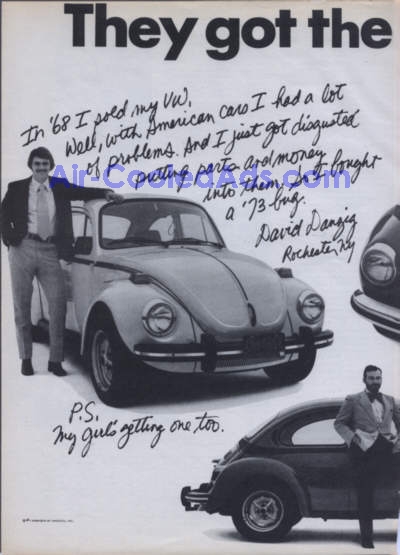 They got the
In '68 I sold my VW.
Well, with American cars I had a lot
of problems. And I just got disgusted
putting parts and money
into them, so I bought
a '73 bug.
David Danzig
Rochester, NY
Air-CooledAds.com
P.S.
My girl's getting one too.